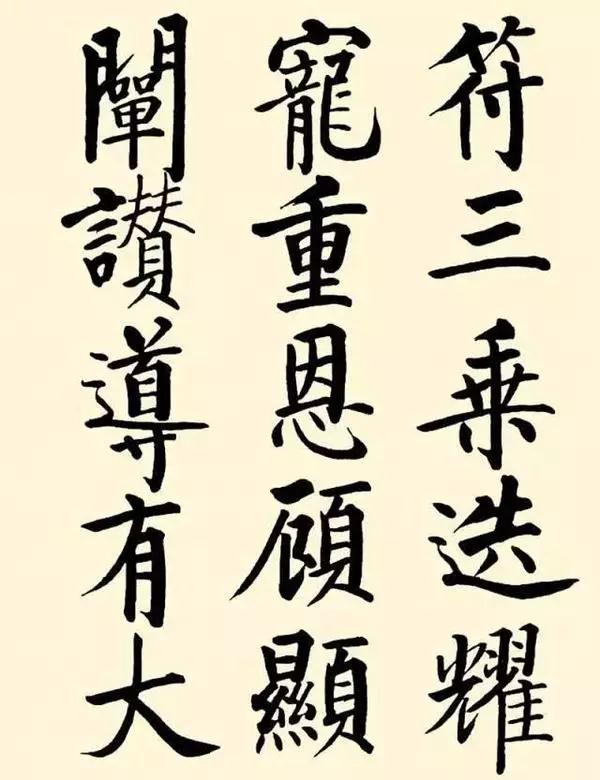 符三乗迭耀
寵重恩顧顯
闡讃導有大